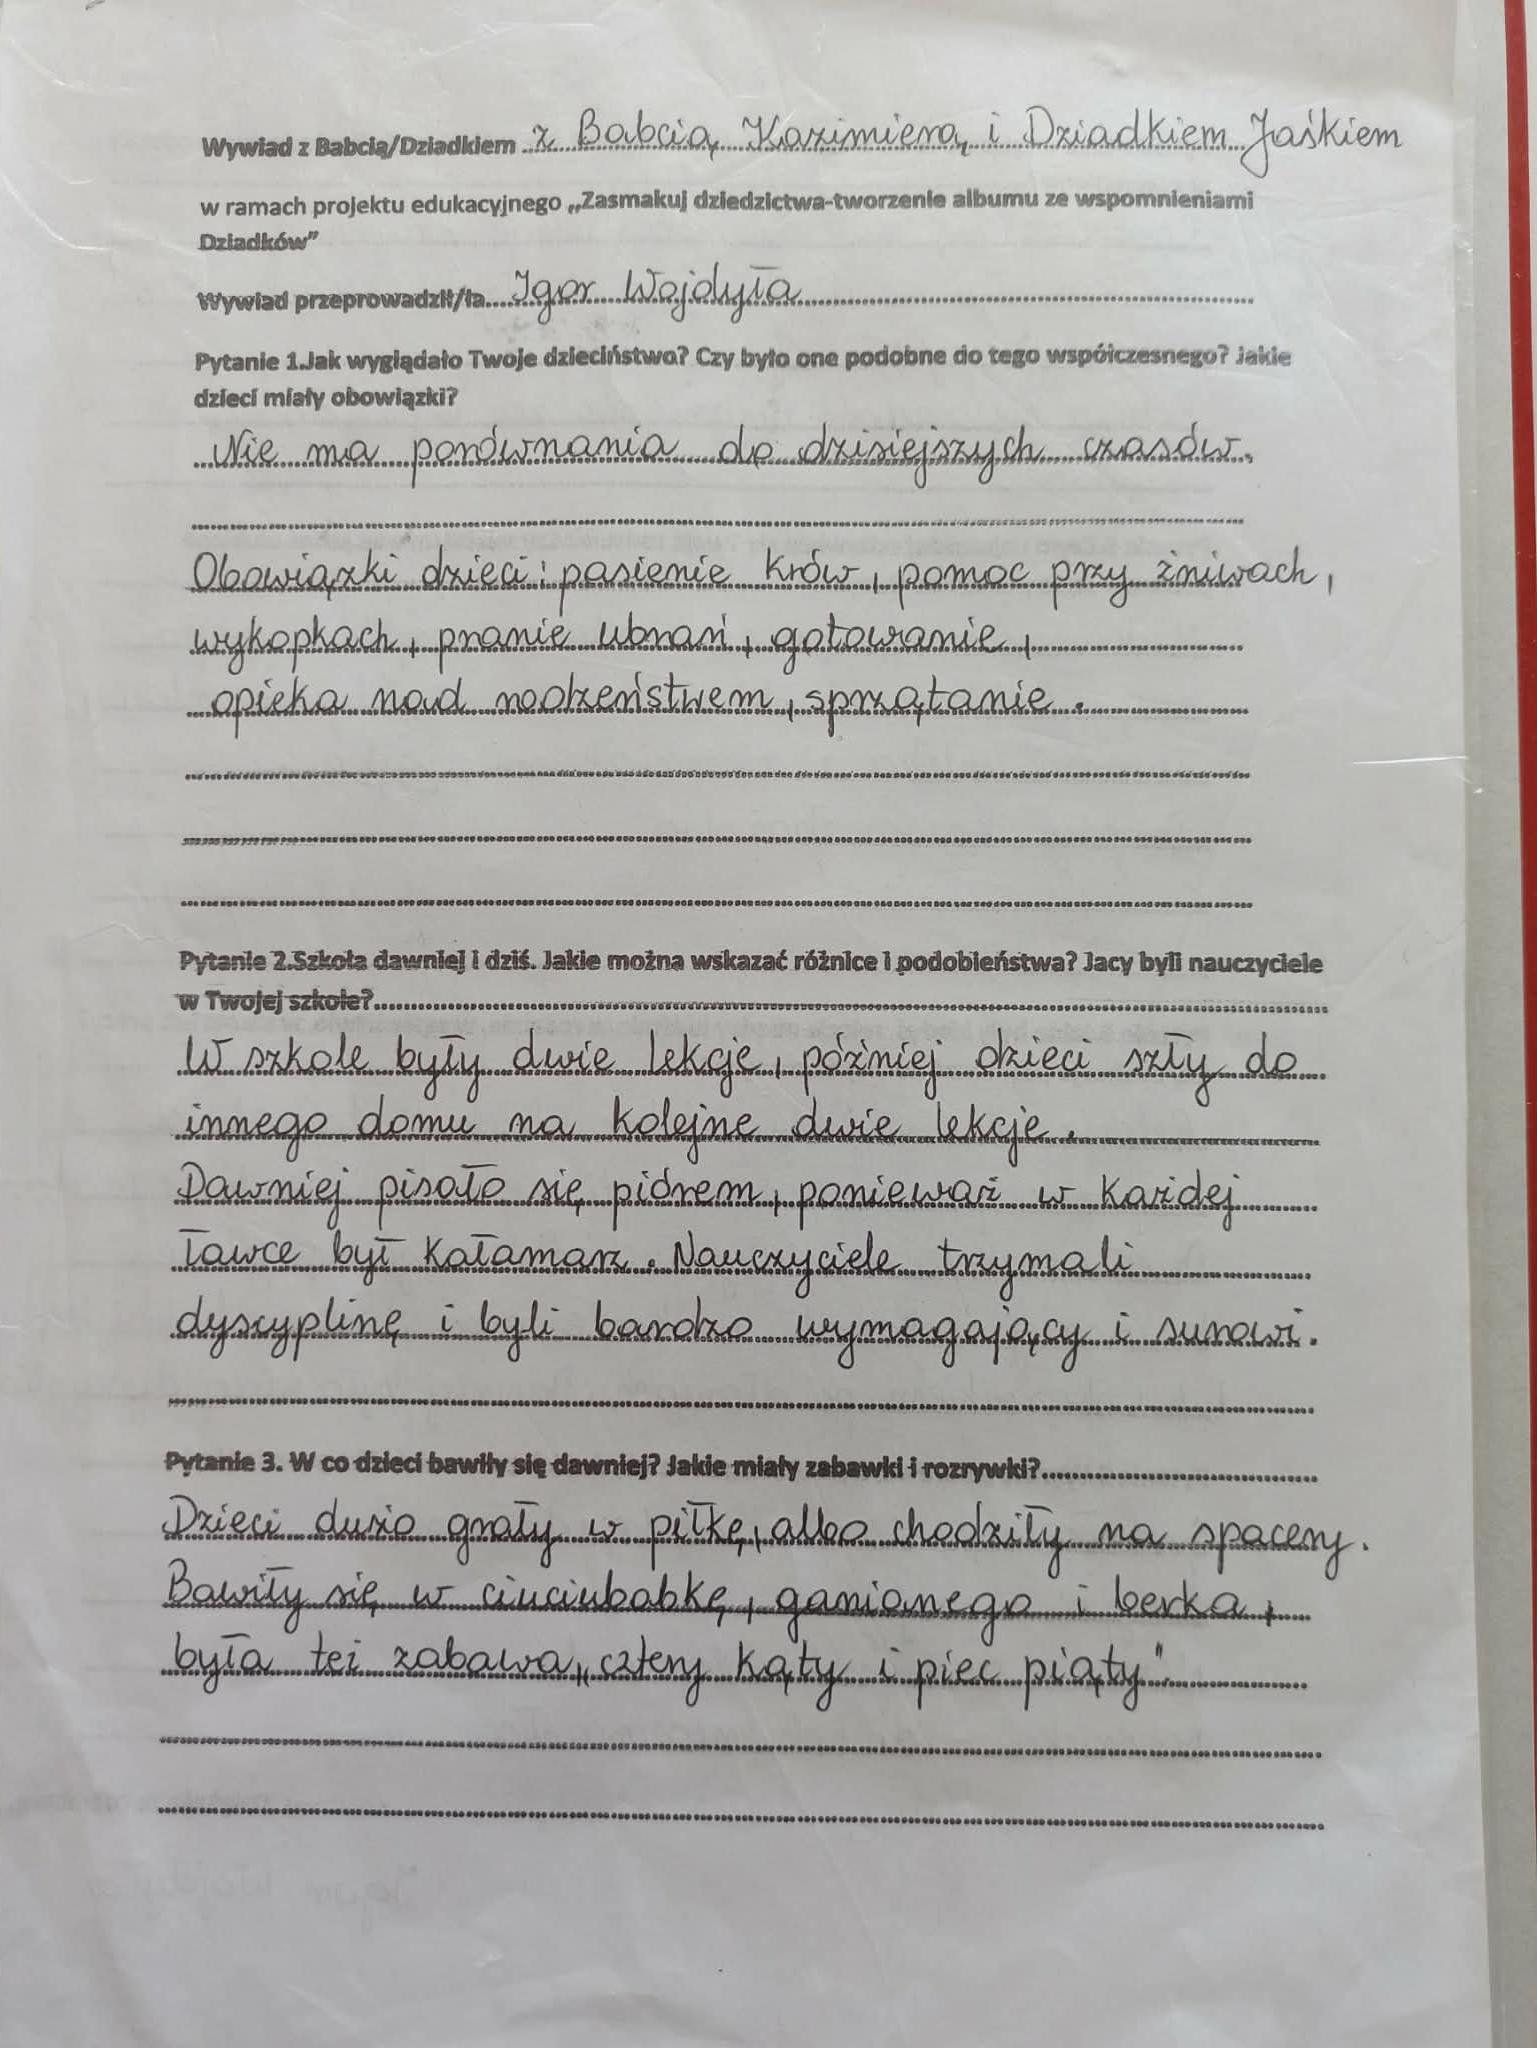 Wywiad z Babcią/Dziadkiem z Babcią Kazimierą i Dziadkiem Jaśkiem
w ramach projektu edukacyjnego „Zasmakuj dziedzictwa-tworzenie albumu ze wspomnieniami
Dziadków”
Wywiad przeprowadził/ła Igor Wojdyła
Pytanie 1.Jak wyglądało Twoje dzieciństwo? Czy było one podobne do tego współczesnego? Jakie
dzieci miały obowiązki?
Nie ma porównania do dzisiejszych czasów.
Obowiązki dzieci: pasienie krów, pomoc przy żniwach,
wykopkach, pranie ubrań, gotowanie,
opieka nad rodzeństwem, sprzątanie.
Pytanie 2.Szkoła dawniej i dziś. Jakie można wskazać różnice i podobieństwa? Jacy byli nauczyciele
w Twojej szkole?
W szkole były dwie lekcje, później dzieci szły do
innego domu na kolejne dwie lekcje.
Dawniej pisało się piórem, ponieważ w każdej
ławce był kałamarz. Nauczyciele trzymali
dyscyplinę i byli bardzo wymagający i surowi.
Pytanie 3. W co dzieci bawiły się dawniej? Jakie miały zabawki i rozrywki?
Dzieci dużo grały w piłkę, albo chodziły na spacery.
Bawiły się w ciuciubabkę, ganianego i berka,
była też zabawa „cztery kąty i piec piąty"